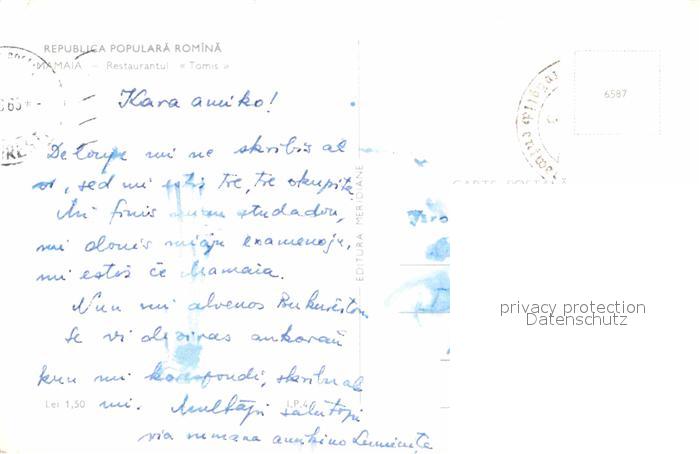 REPUBLICA POPULARĂ ROMÎNĂ
MAMAIA – Restaurantul « Tomis »
6587
Kara amiko!
De longe mi ne skribis al
vi, sed mi estis tre, tre okupita
Mi finis studadon,
mi donis miajn examenojn,
mi estis ĉe Mamaia.
Nun mi alvenos Bukureŝton
Se vi deziras ankoraŭ
kun mi korespondi, skribu al
mi. Multajn salutojn
via rumana amikino Luminița
Lei 1,50
I.P.4
EDITURA MERIDIANE
CARTE POSTALĂ
privacy protection
Datenschutz